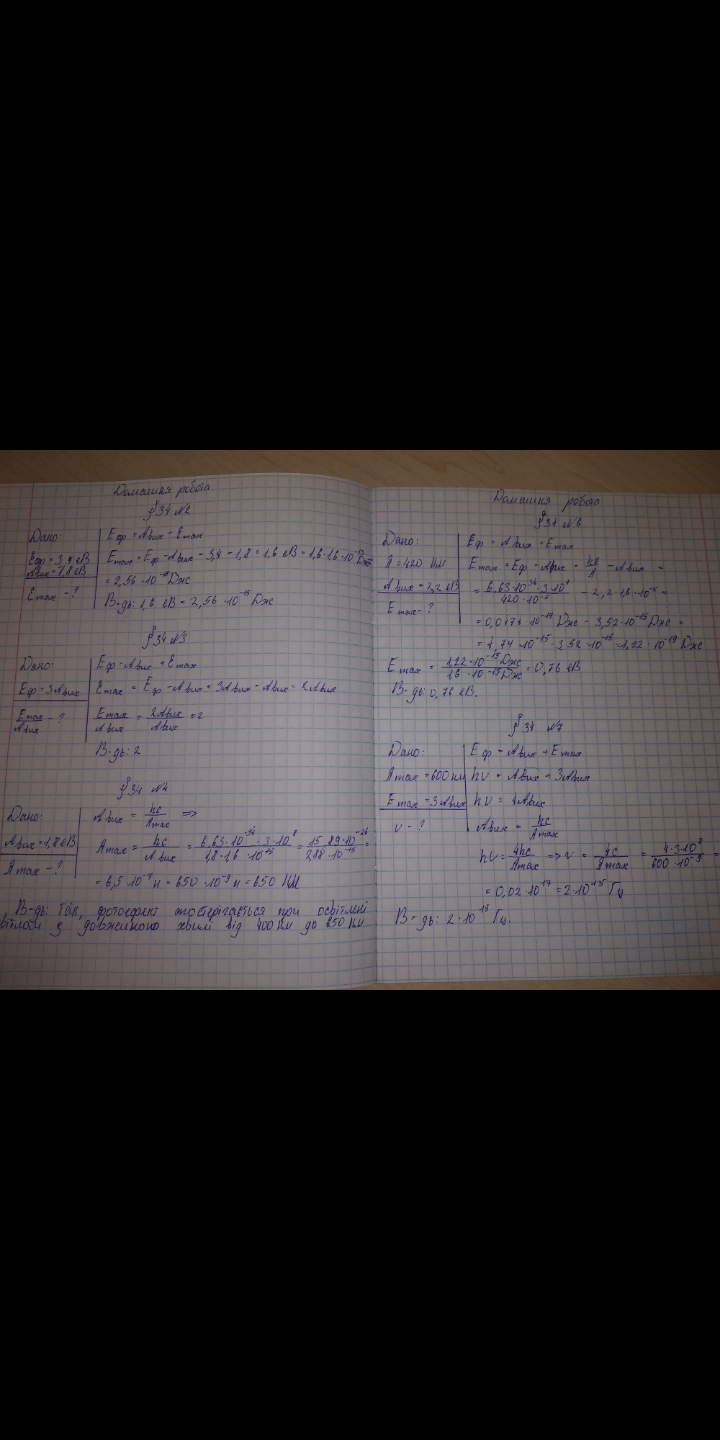 Домашня робота
§34 №2
Дано:
Eф = 3,4 еВ
Aвих = 1,8 еВ
Emax - ?
Eф = Aвих + Emax
Emax = Eф - Aвих = 3,4 - 1,8 = 1,6 еВ = 1,6·1,6·10⁻¹⁹ Дж
= 2,56·10⁻¹⁹ Дж
В-дь: 1,6 еВ = 2,56·10⁻¹⁹ Дж
§34 №3
Дано:
Eф = 3Aвих
Emax/Aвих - ?
Eф = Aвих + Emax
Emax = Eф - Aвих = 3Aвих - Aвих = 2Aвих
Emax/Aвих = 2Aвих/Aвих = 2
В-дь: 2
§34 №4
Дано:
Aвих = 1,8 еВ
λmax - ?
Aвих = hc/λmax =>
λmax = hc/Aвих = 6,63·10⁻³⁴·3·10⁸/1,8·1,6·10⁻¹⁹ = 19,89·10⁻²⁶/2,88·10⁻¹⁹ =
= 6,5·10⁻⁷ м = 650·10⁻⁹ м = 650 нм
В-дь: Так, фотоефект спостерігається при освітлені
світлом з довжиною хвилі від 400 нм до 650 нм
Домашня робота
§34 №6
Дано:
λ = 420 нм
Aвих = 2,2 еВ
Emax - ?
Eф = Aвих + Emax
Emax = Eф - Aвих = hc/λ - Aвих =
= 6,63·10⁻³⁴·3·10⁸/420·10⁻⁹ - 2,2·1,6·10⁻¹⁹ =
= 0,0474·10⁻¹⁷ Дж - 3,52·10⁻¹⁹ Дж =
= 4,74·10⁻¹⁹ - 3,52·10⁻¹⁹ = 1,22·10⁻¹⁹ Дж
Emax = 1,22·10⁻¹⁹ Дж/1,6·10⁻¹⁹ Дж = 0,76 еВ
В-дь: 0,76 еВ.
§34 №7
Дано:
λmax = 600 нм
Emax = 3Aвих
ν - ?
Eф = Aвих + Emax
hν = Aвих + 3Aвих
hν = 4Aвих
Aвих = hc/λmax
hν = 4hc/λmax => ν = 4c/λmax = 4·3·10⁸/600·10⁻⁹ =
= 0,02·10¹⁷ = 2·10¹⁵ Гц
В-дь: 2·10¹⁵ Гц.